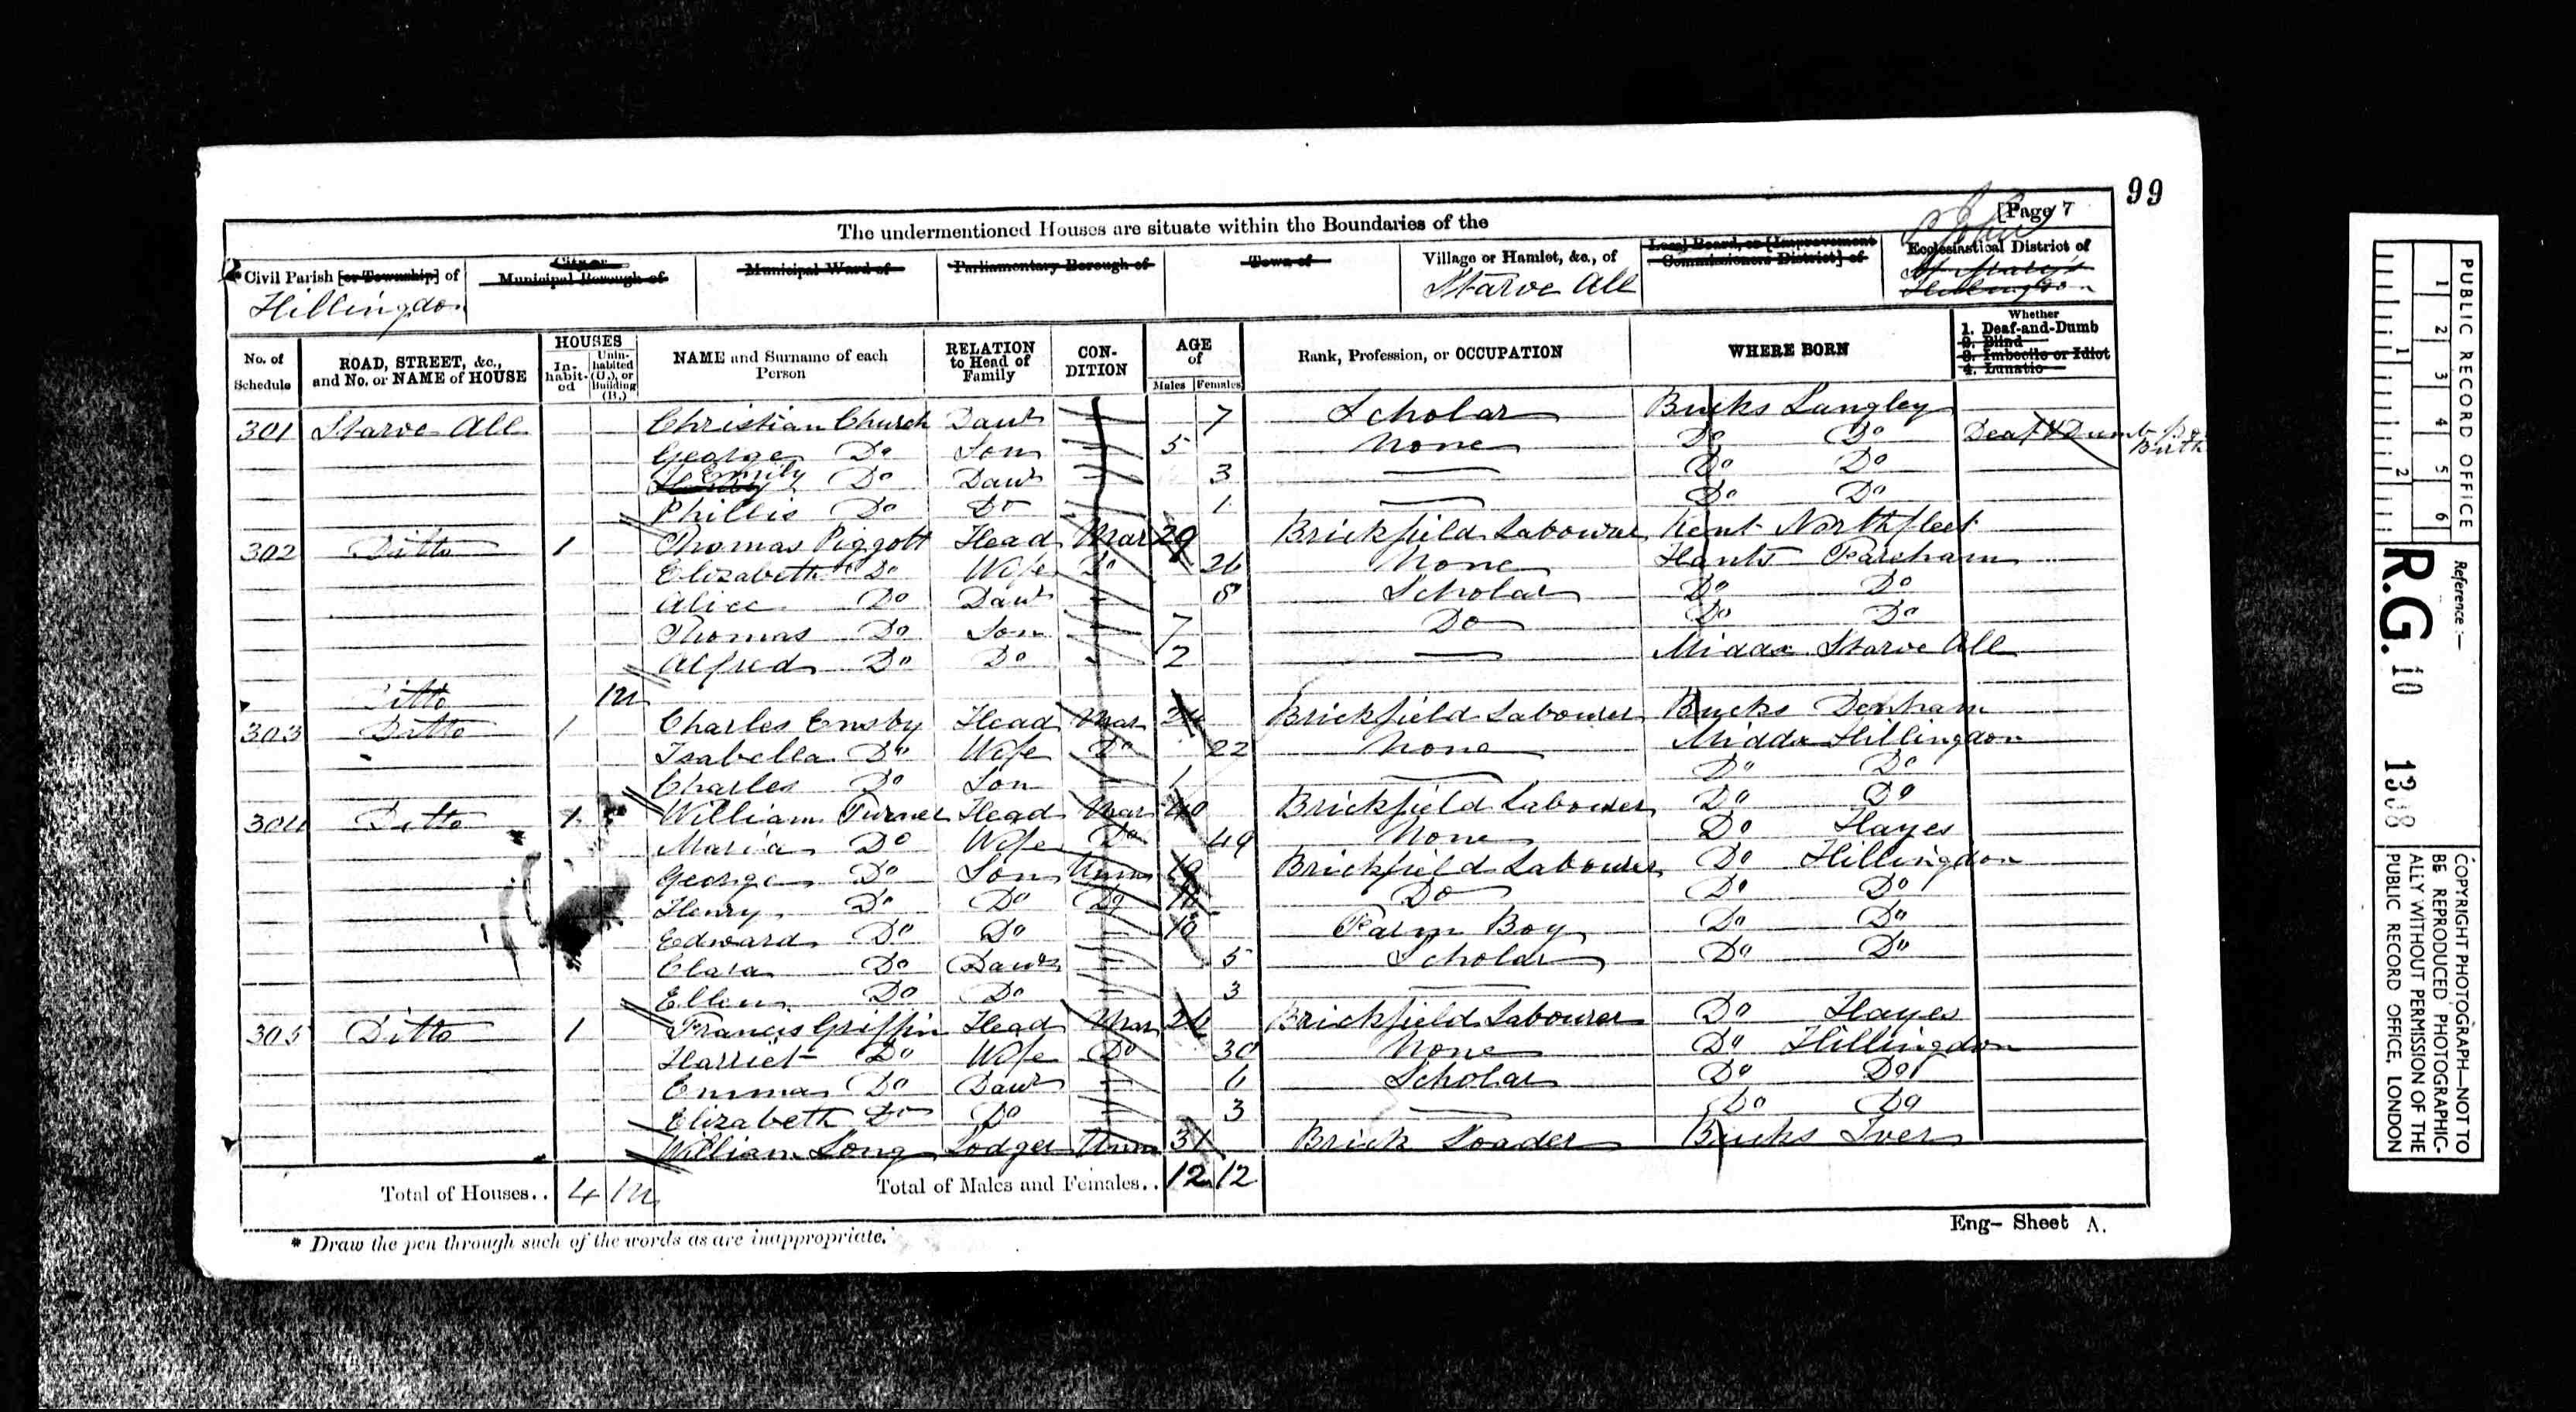 99
[Page 7
The undermentioned Houses are situate within the Boundaries of the
Civil Parish [or Township] of
City or Municipal Borough of
Municipal Ward of
Parliamentary Borough of
Town of
Village or Hamlet, &c., of
Local Board, or [Improvement Commissioners District] of
Ecclesiastical District of
Hillingdon
Starve All
St Mary's Hillingdon
No. of Schedule
ROAD, STREET, &c., and No. or NAME of HOUSE
HOUSES
In-habit-ed
Unin-habited (U.), or Building (B.)
NAME and Surname of each Person
RELATION to Head of Family
CON-DITION
AGE of
Males
Females
Rank, Profession, or OCCUPATION
WHERE BORN
Whether
1. Deaf-and-Dumb
2. Blind
3. Imbecile or Idiot
4. Lunatic
301 Starve All Christian Church Daur 7 Scholar Bucks Langley
George Do Son 5 None Do Do Deaf & Dumb Birth
Emily Do Daur 3 Do Do
Phillis Do Do 1 Do Do
302 Ditto 1 Thomas Piggott Head Mar 29 Brickfield Labourer Kent Northfleet
Elizabeth Do Wife Do 26 None Hants Fareham
Alice Do Daur 8 Scholar Do Do
Thomas Do Son 7 Do Do Do
Alfred Do Do 2 Middx Starve All
Ditto
303 Ditto 1 Charles Emsby Head Mar 24 Brickfield Labourer Bucks Denham
Isabella Do Wife Do 22 None Middx Hillingdon
Charles Do Son 1 Do Do
304 Ditto 1 William Turner Head Mar 40 Brickfield Labourer Do Do
Maria Do Wife Do 49 None Do Hayes
George Do Son Unm 19 Brickfield Labourer Do Hillingdon
Henry Do Do Do Do Do Do
Edward Do Do Farm Boy Do Do
Clara Do Daur 5 Scholar Do Do
Ellen Do Do 3
305 Ditto 1 Francis Griffin Head Mar 24 Brickfield Labourer Do Hayes
Harriet Do Wife Do 30 None Do Hillingdon
Emma Do Daur 6 Scholar Do Do
Elizabeth Do Do 3 Do Do
William Long Lodger Unm 31 Brick Loader Bucks Iver
Total of Houses.. 4
Total of Males and Females.. 12 12
* Draw the pen through such of the words as are inappropriate.
Eng- Sheet A.
PUBLIC RECORD OFFICE
1 2 3 4 5 6
1 2
Reference:—
R.G. 10 1308
COPYRIGHT PHOTOGRAPH—NOT TO
BE REPRODUCED PHOTOGRAPHIC-
ALLY WITHOUT PERMISSION OF THE
PUBLIC RECORD OFFICE, LONDON